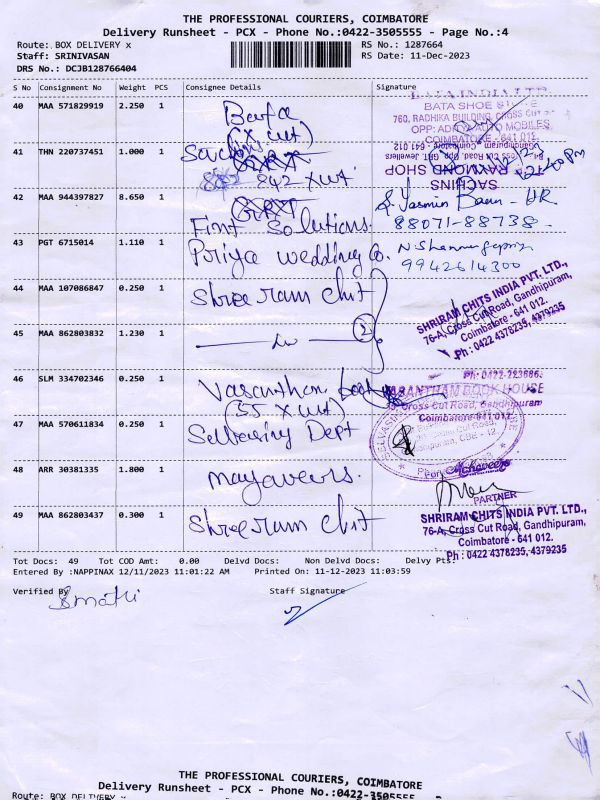 THE PROFESSIONAL COURIERS, COIMBATORE
Delivery Runsheet - PCX - Phone No.:0422-3505555 - Page No.:4
Route: BOX DELIVERY x
RS No.: 1287664
Staff: SRINIVASAN
RS Date: 11-Dec-2023
DRS No.: DCJB128766404
S No Consignment No Weight PCS Consignee Details Signature
40 MAA 571829919 2.250 1 Bata
(X cut)
BATA INDIA LTD
BATA SHOE STORE
760, RADHIKA BUILDING, CROSS CUT RD
OPP: ADITYA AUTO MOBILES
COIMBATORE - 641 012
41 THN 220737451 1.000 1 Sachins
842 X cut.
SACHINS
DIAMOND SHOP
42 MAA 944397827 8.650 1
First Solutions.
S. Yasmin Banu - HR
88071-88738
43 PGT 6715014 1.110 1 Priya wedding Co.
9942614300
44 MAA 107086847 0.250 1 Shree ram chit
SHRIRAM CHITS INDIA PVT. LTD.,
76-A, Cross Cut Road, Gandhipuram,
Coimbatore - 641 012.
Ph: 0422 4378235, 4379235
45 MAA 862803832 1.230 1
2
46 SLM 334702346 0.250 1 Vasantham book
(35 X cut)
VASANTHAM BOOK HOUSE
Cross Cut Road, Gandhipuram
Coimbatore-641 012
47 MAA 570611834 0.250 1 Dept
48 ARR 30381335 1.800 1 mahaveers.
For Mahaveers
PARTNER
49 MAA 862803437 0.300 1 Shree ram chit
SHRIRAM CHITS INDIA PVT. LTD.,
76-A, Cross Cut Road, Gandhipuram,
Coimbatore - 641 012.
Ph : 0422 4378235, 4379235
Tot Docs: 49 Tot COD Amt: 0.00 Delvd Docs: Non Delvd Docs: Delvy Pts:
Entered By :NAPPINAX 12/11/2023 11:01:22 AM Printed On: 11-12-2023 11:03:59
Verified By
Staff Signature
THE PROFESSIONAL COURIERS, COIMBATORE
Delivery Runsheet - PCX - Phone No.:0422-3505555
Route: BOX DELIVERY x